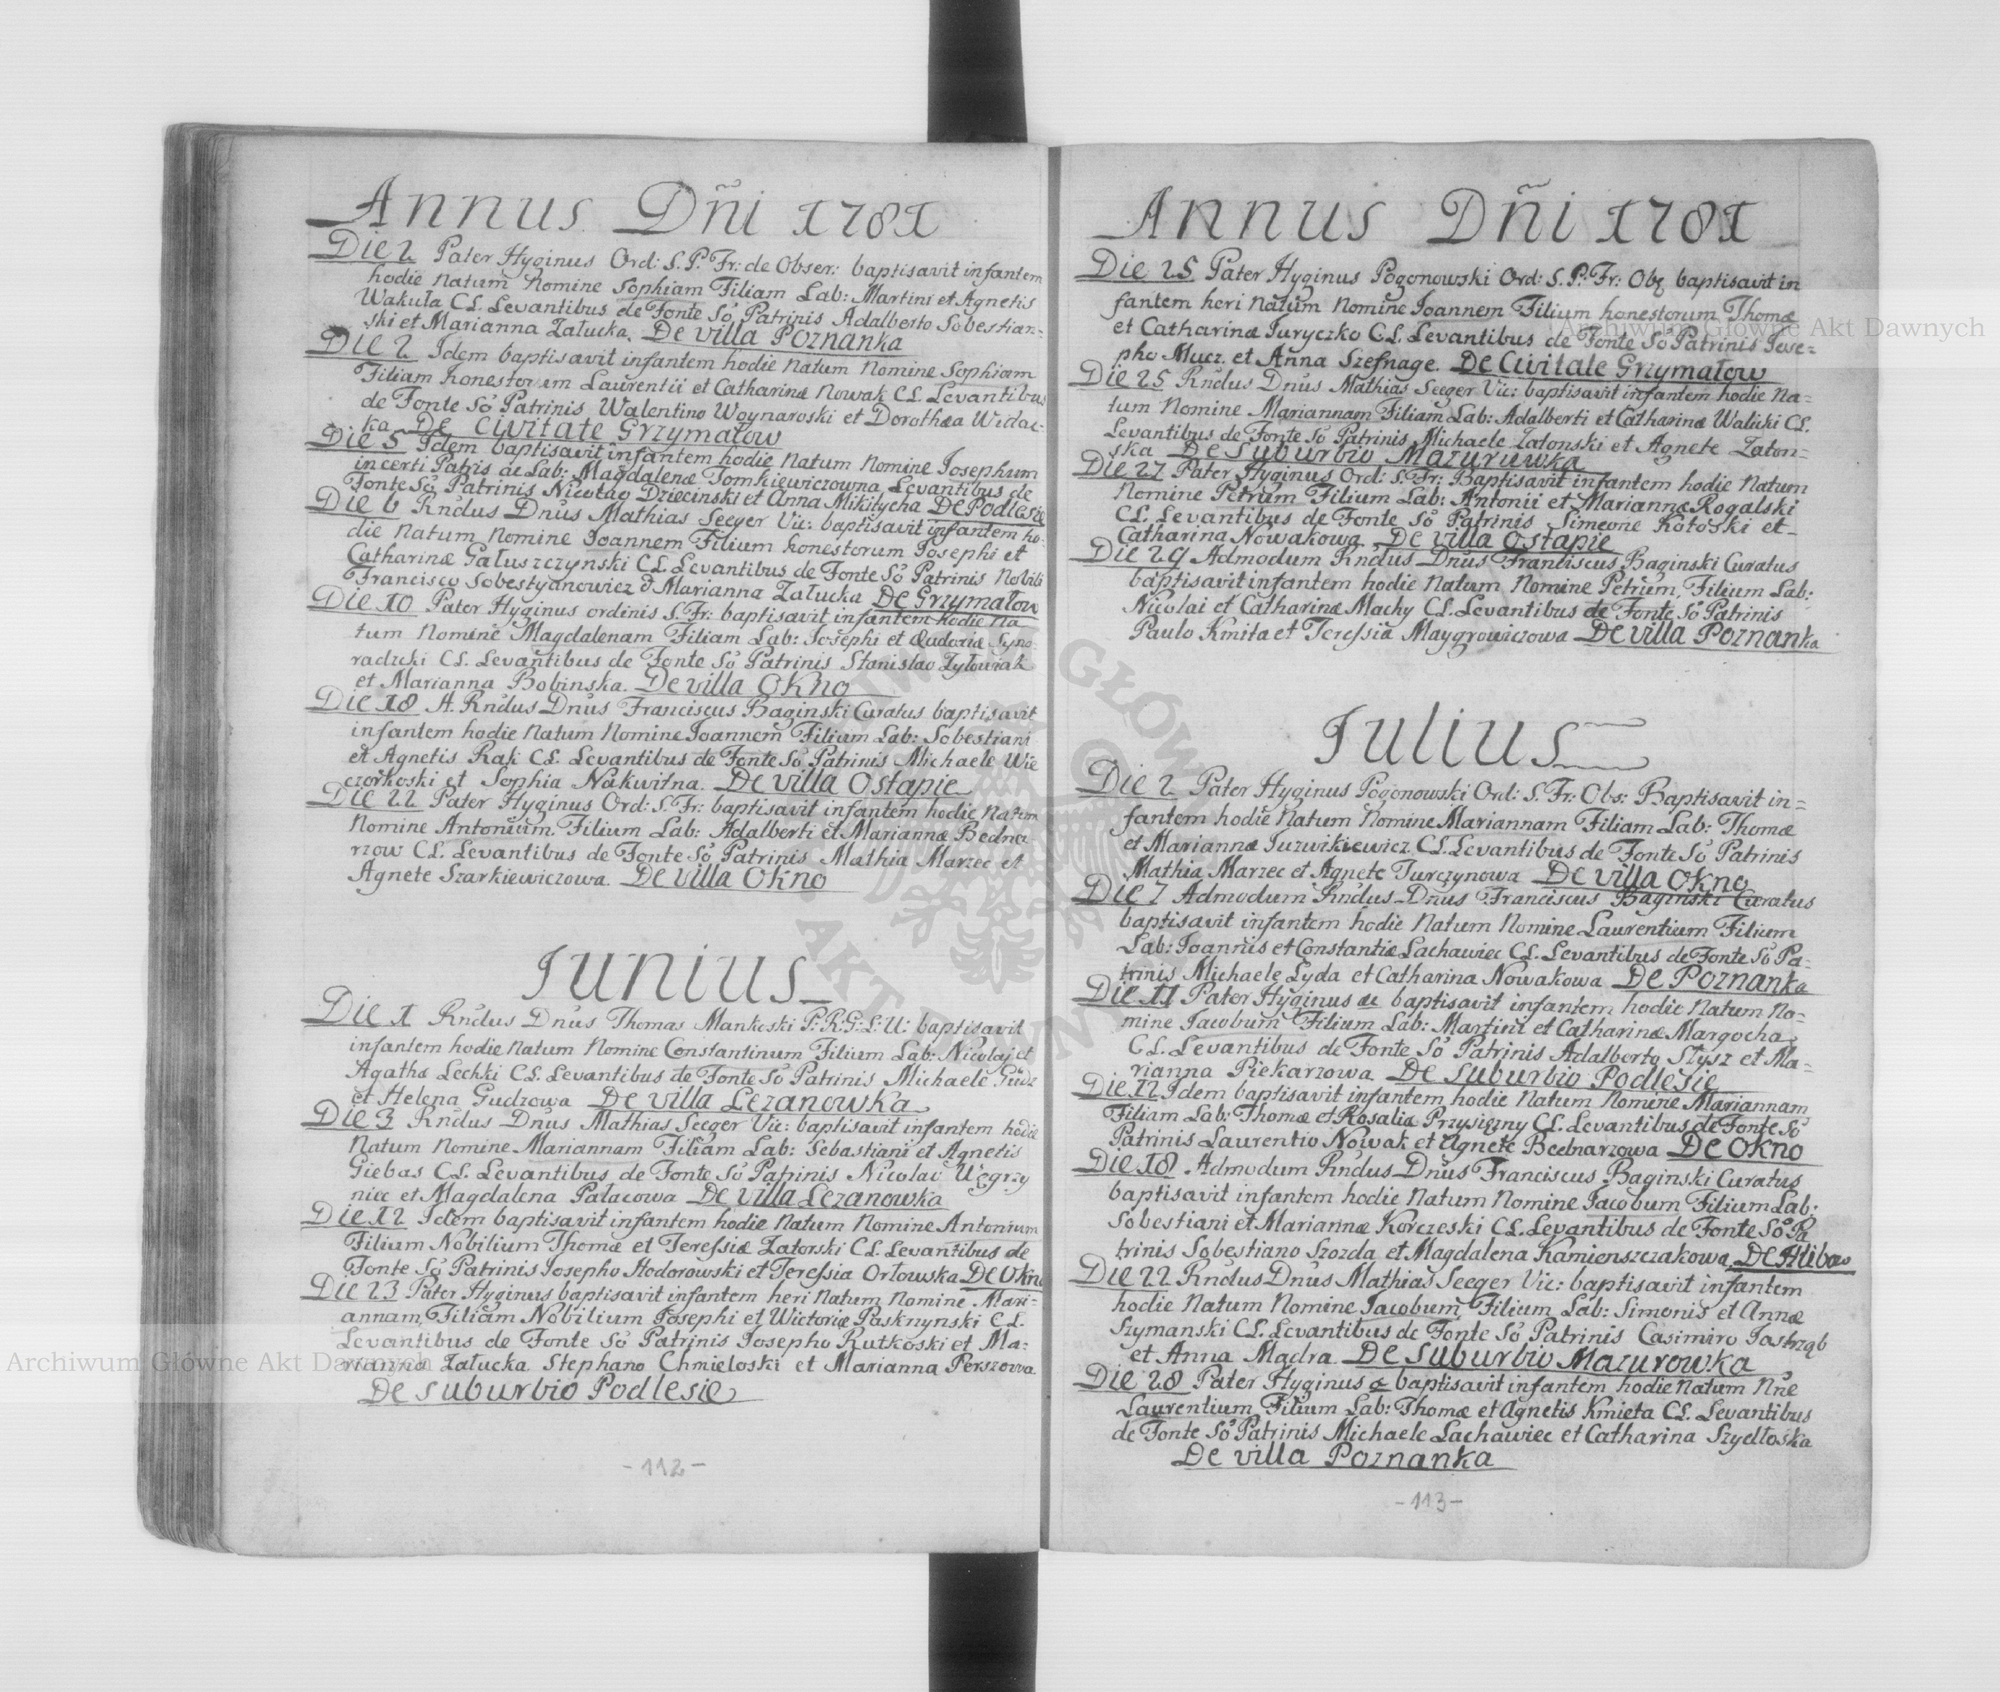 Annus Dñi 1781
Die 2 Pater Hyginus Ord: S. P. Fr: de Obser: baptisavit infantem
hodie Natum Nomine Sophiam Filiam Lab: Martini et Agnetis
Wakuła CL. Levantibus de Fonte So Patrinis Adalberto Sobestian=
ski et Marianna Załucka. De villa Poznanka
Die 2 Idem baptisavit infantem hodie Natum Nomine Sophiam
Filiam honestorum Laurentii et Catharinæ Nowak CL. Levantibus
de Fonte So Patrinis Walentino Woynaroski et Dorothea Widac-
ka De Civitate Grzymałow
Die 5 Idem baptisavit infantem hodie Natum Nomine Josephum
incerti Patris ac Lab: Magdalenæ Tomkiewiczowna Levantibus de
Fonte So Patrinis Nicolao Dziecinski et Anna Mikitycha De Podlesie
Die 6 Rndus Dnus Mathias Seeger Vic: baptisavit infantem ho-
die Natum Nomine Joannem Filium honestorum Josephi et
Catharinæ Gałuszczynski CL Levantibus de Fonte So Patrinis Nobili
Francisco Sobestyanowicz & Marianna Załucka De Grzymałow
Die 10 Pater Hyginus ordinis S. Fr: baptisavit infantem hodie Na
tum Nomine Magdalenam Filiam Lab: Josephi et Eudoxiæ Syno-
radzki CL. Levantibus de Fonte So Patrinis Stanislao Zyłowiak
et Marianna Bobinska. De villa Okno
Die 18 A. Rndus Dnus Franciscus Baginski Curatus baptisavit
infantem hodie Natum Nomine Joannem Filium Lab: Sobestiani
et Agnetis Rak CL. Levantibus de Fonte So Patrinis Michaele Wie
czorkoski et Sophia Nakwitna. De villa Ostapie
Die 22 Pater Hyginus Ord: S. Fr: baptisavit infantem hodie Natum
Nomine Antonium Filium Lab: Adalberti et Mariannæ Bedna
rzow CL. Levantibus de Fonte So Patrinis Mathia Marzec et
Agnete Szarkiewiczowa. De villa Okno
Junius
Die 1 Rndus Dnus Thomas Mankoski P: R: G: L: U: baptisavit
infantem hodie Natum Nomine Constantinum Filium Lab: Nicolaj et
Agathæ Lechki CL. Levantibus de Fonte So Patrinis Michaele Gudz
et Helena Gudzowa De villa Lezanowka
Die 3 Rndus Dnus Mathias Seeger Vic: baptisavit infantem hodie
Natum Nomine Mariannam Filiam Lab: Sebastiani et Agnetis
Giebas CL. Levantibus de Fonte So Patrinis Nicolao Węgrzy
nice et Magdalena Pałacowa De villa Lezanowka
Die 12 Idem baptisavit infantem hodie Natum Nomine Antonium
Filium Nobilium Thomæ et Teressiæ Zatorski CL. Levantibus de
Fonte So Patrinis Josepho Hodorowski et Teressia Orłowska De Okno
Die 23 Pater Hyginus baptisavit infantem heri Natum Nomine Mari-
annam Filiam Nobilium Josephi et Wictoriæ Pasknynski CL.
Levantibus de Fonte So Patrinis Josepho Rutkoski et Ma-
rianna Załucka Stephano Chmieloski et Marianna Perszowa
De suburbio Podlesie
-112-
Annus Dñi 1781
Die 25 Pater Hyginus Pogonowski Ord: S. P: Fr: Obs baptisavit in
fantem heri Natum Nomine Joannem Filium honestorum Thomæ
et Catharinæ Juryczko CL Levantibus de Fonte So Patrinis Jose=
pho Mucz et Anna Szefnage. De Civitate Grzymałow
Die 25 Rndus Dnus Mathias Seeger Vic: baptisavit infantem hodie Na-
tum Nomine Mariannam Filiam Lab: Adalberti et Catharinæ Walicki CL.
Levantibus de Fonte So Patrinis Michaele Zatonski et Agnete Zaton-
ska De Suburbio Mazuruwka
Die 27 Pater Hyginus Ord: S. Fr: Baptisavit infantem hodie Natum
Nomine Petrum Filium Lab: Antonii et Mariannæ Rogalski
CL. Levantibus de Fonte So Patrinis Simeone Kotoski et
Catharina Nowakowa De villa Ostapie
Die 29 Admodum Rndus Dnus Franciscus Baginski Curatus
baptisavit infantem hodie Natum Nomine Petrum, Filium Lab:
Nicolai et Catharinæ Machy CL. Levantibus de Fonte So Patrinis
Paulo Kmita et Teressia Maygrowiczowa De villa Poznanka
Julius
Die 2 Pater Hyginus Pogonowski Ord: S. Fr: Obs: Baptisavit in=
fantem hodie Natum Nomine Mariannam Filiam Lab: Thomæ
et Mariannæ Juzwikiewicz CL. Levantibus de Fonte So Patrinis
Mathia Marzec et Agnete Turczynowa De villa Okno
Die 7 Admodum Rndus Dnus Franciscus Baginski Curatus
baptisavit infantem hodie Natum Nomine Laurentium Filium
Lab: Joannis et Constantiæ Lachawiec CL. Levantibus de Fonte So Pa-
trinis Michaele Lyda et Catharina Nowakowa De Poznanka
Die 11 Pater Hyginus ac baptisavit infantem hodie Natum No-
mine Jacobum Filium Lab: Martini et Catharinæ Margocha
CL. Levantibus de Fonte So Patrinis Adalberto Stysz et Ma-
rianna Piekarzowa De suburbio Podlesie
Die 12 Idem baptisavit infantem hodie Natum Nomine Mariannam
Filiam Lab: Thomæ et Rosaliæ Przysiczny CL. Levantibus de Fonte So
Patrinis Laurentio Nowak et Agnete Bednarzowa De Okno
Die 18 Admodum Rndus Dnus Franciscus Baginski Curatus
baptisavit infantem hodie Natum Nomine Jacobum Filium Lab:
Sobestiani et Mariannæ Korczeski CL. Levantibus de Fonte So Pa
trinis Sobestiano Szozda et Magdalena Kamienszczakowa De Hlibow
Die 22 Rndus Dnus Mathias Seeger Vic: baptisavit infantem
hodie Natum Nomine Jacobum Filium Lab: Simonis et Annæ
Szymanski CL. Levantibus de Fonte So Patrinis Casimiro Jastrząb
et Anna Mądra. De suburbio Mazurowka
Die 28 Pater Hyginus & baptisavit infantem hodie Natum Nne
Laurentium Filium Lab: Thomæ et Agnetis Kmieta CL. Levantibus
de Fonte So Patrinis Michaele Lachawiec et Catharina Szydłoska
De villa Poznanka
-113-
Archiwum Główne Akt Dawnych
Archiwum Główne Akt Dawnych